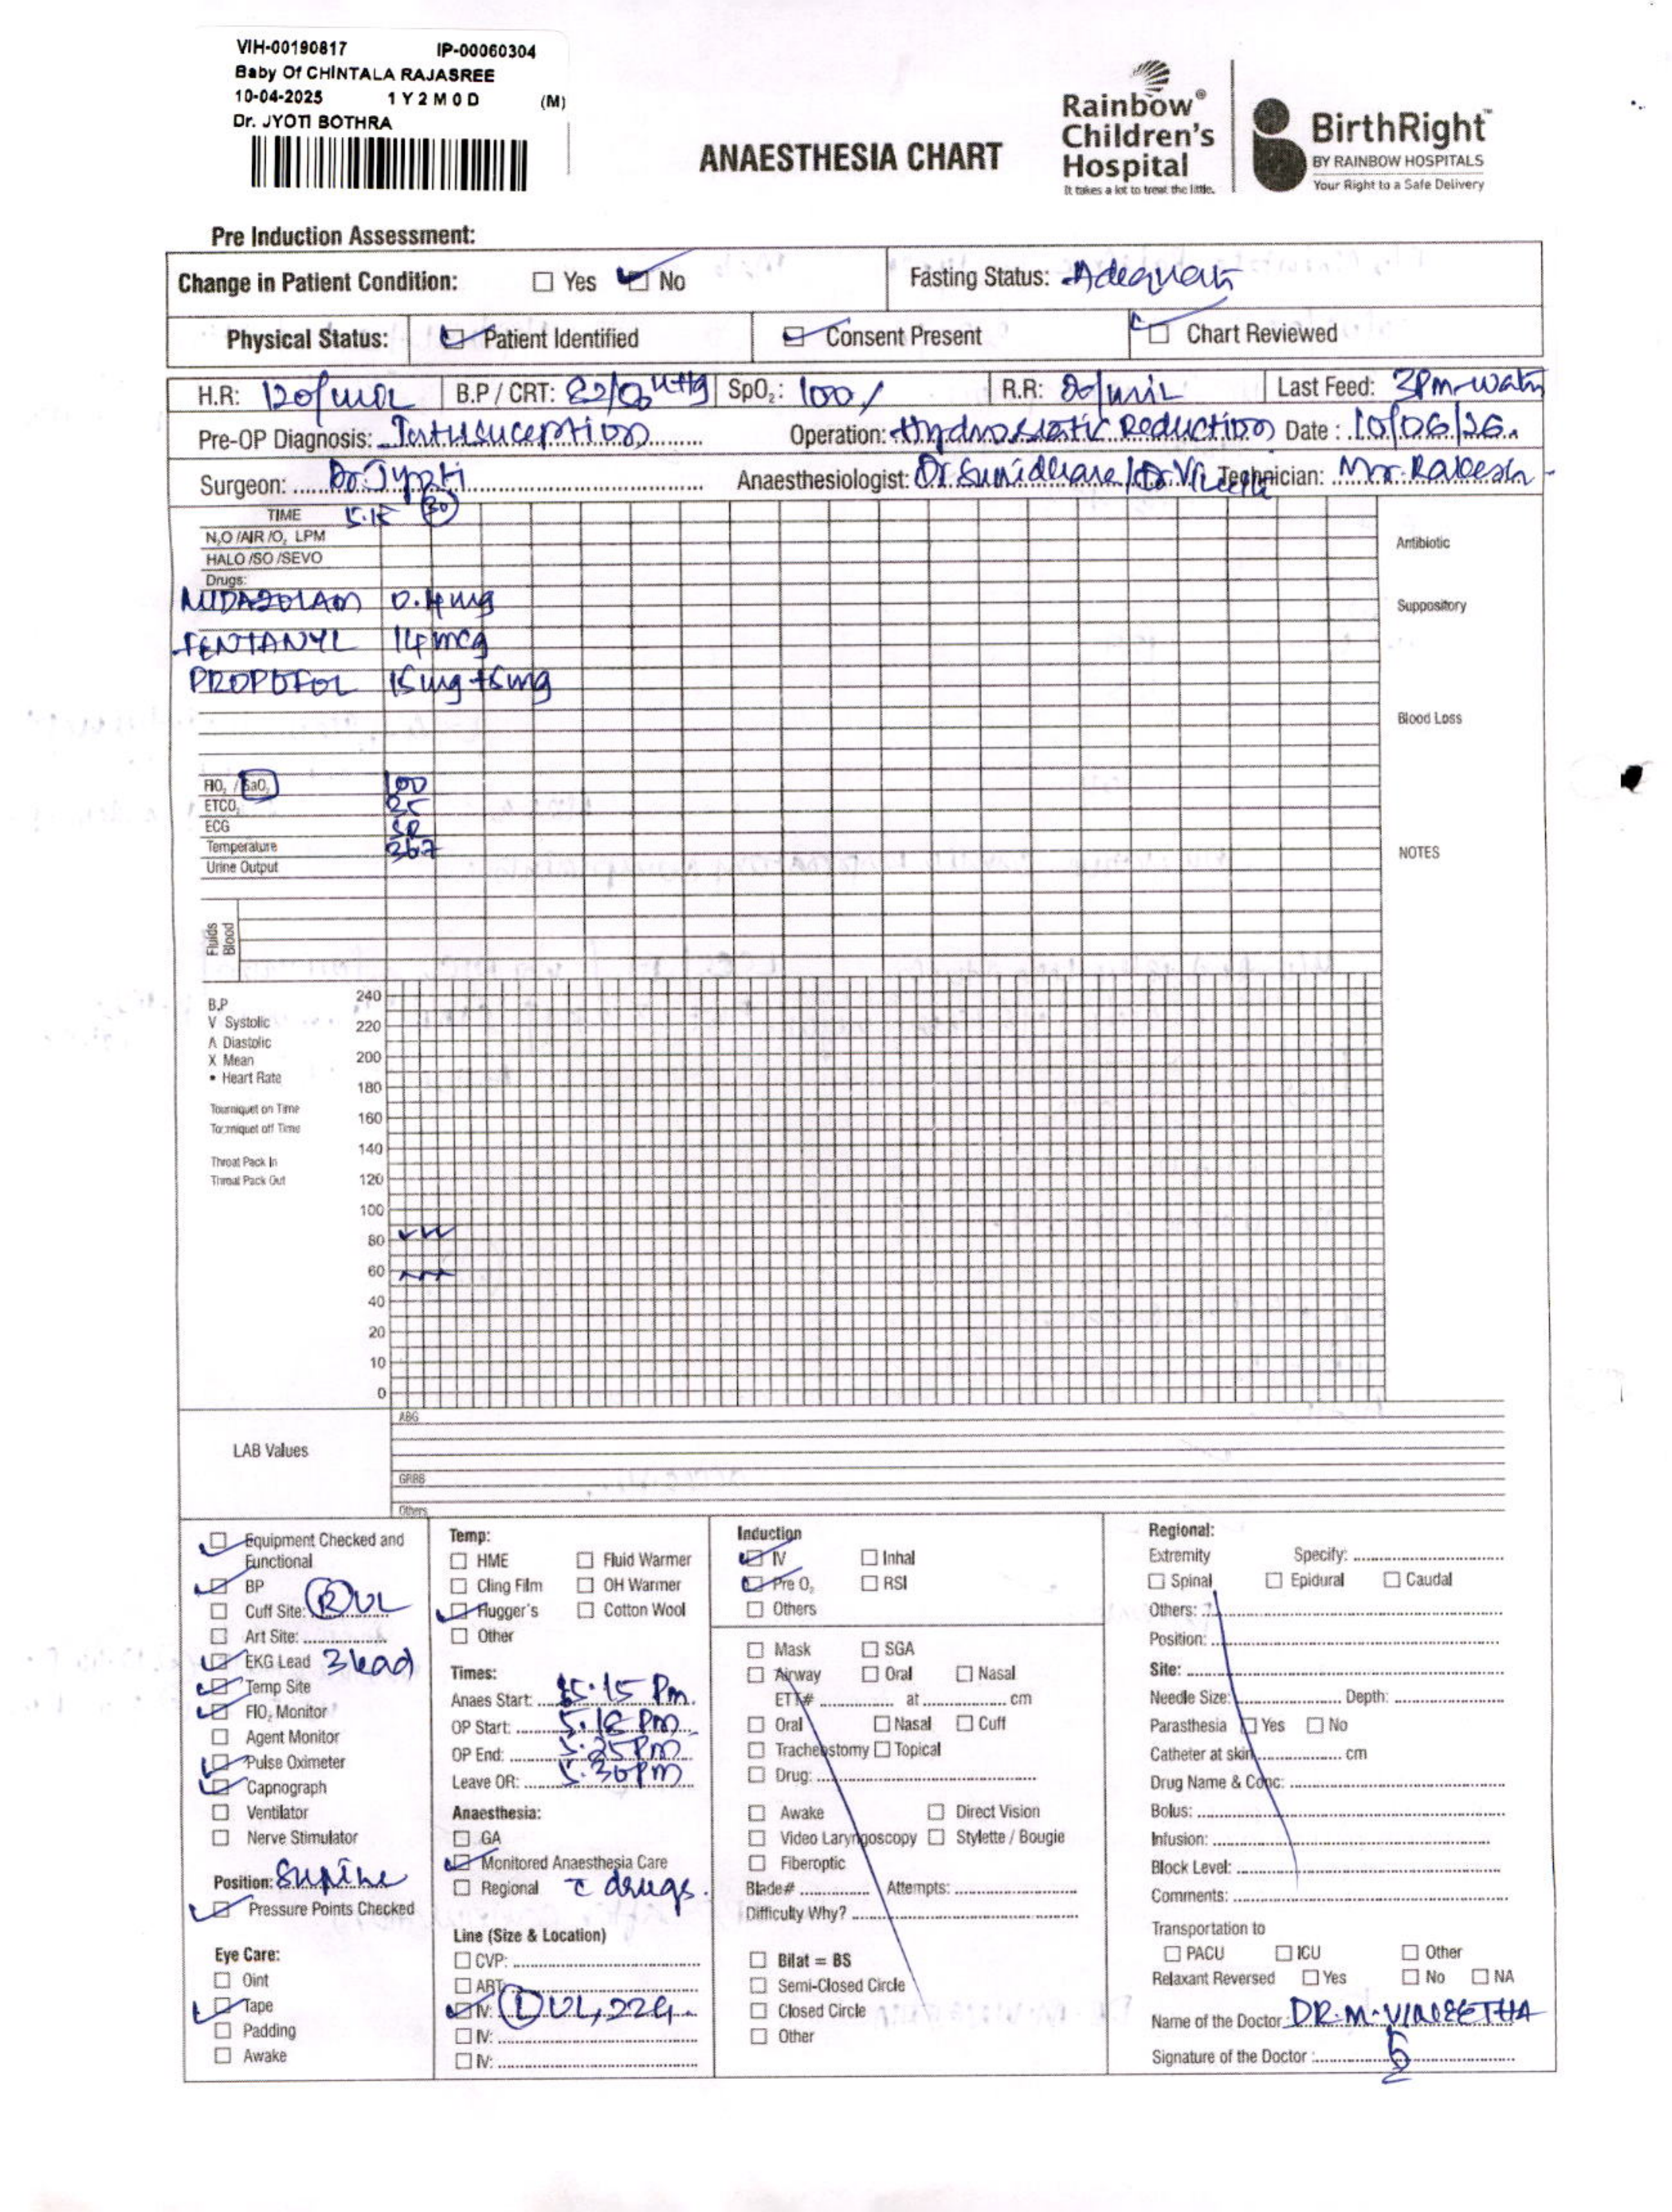 VIH-00190817 IP-00060304
Baby Of CHINTALA RAJASREE
10-04-2025 1 Y 2 M 0 D (M)
Dr. JYOTI BOTHRA
ANAESTHESIA CHART
Rainbow® Children's Hospital
It takes a lot to treat the little.
BirthRight™
BY RAINBOW HOSPITALS
Your Right to a Safe Delivery
Pre Induction Assessment:
Change in Patient Condition: Yes No Fasting Status: Adequate
Physical Status: Patient Identified Consent Present Chart Reviewed
H.R: 120/min B.P / CRT: SpO2: 100/ R.R: 20/min Last Feed: 3Pm-water
Pre-OP Diagnosis: Intussuception Operation: Hydrostatic Reduction Date : 10/06/26.
Surgeon: Dr. Jyoti Anaesthesiologist: Technician: Mr. Rakesh
TIME 5.15 30
N2O /AIR /O2 LPM
HALO /SO /SEVO
Drugs:
MIDAZOLAM 0.4mg
FENTANYL 14 mcg
PROPOFOL 15mg +5mg
Antibiotic
Suppository
Blood Loss
FIO2 / SaO2 100
ETCO2 25
ECG SR
Temperature 36.7
Urine Output
NOTES
Fluids Blood
B.P
V Systolic
Λ Diastolic
X Mean
• Heart Rate
Tourniquet on Time
Tourniquet off Time
Throat Pack In
Throat Pack Out
240
220
200
180
160
140
120
100
80
60
40
20
10
0
LAB Values
ABG
GRBS
Others
Equipment Checked and Functional
BP
Cuff Site: R UL
Art Site:
EKG Lead 3 lead
Temp Site
FIO2 Monitor
Agent Monitor
Pulse Oximeter
Capnograph
Ventilator
Nerve Stimulator
Position: Supine
Pressure Points Checked
Eye Care:
Oint
Tape
Padding
Awake
Temp:
HME Fluid Warmer
Cling Film OH Warmer
Hugger's Cotton Wool
Other
Times:
Anaes Start: 5.15 Pm.
OP Start: 5.18 PM
OP End: 5.25 PM
Leave OR: 5.30pm
Anaesthesia:
GA
Monitored Anaesthesia Care
Regional c̄ drugs.
Line (Size & Location)
CVP:
ART:
IV: UL, 22G
IV:
IV:
Induction
IV Inhal
Pre O2 RSI
Others
Mask SGA
Airway Oral Nasal
ETT# at cm
Oral Nasal Cuff
Tracheostomy Topical
Drug:
Awake Direct Vision
Video Laryngoscopy Stylette / Bougie
Fiberoptic
Blade# Attempts:
Difficulty Why?
Bilat = BS
Semi-Closed Circle
Closed Circle
Other
Regional:
Extremity Specify:
Spinal Epidural Caudal
Others:
Position:
Site:
Needle Size: Depth:
Parasthesia Yes No
Catheter at skin cm
Drug Name & Conc:
Bolus:
Infusion:
Block Level:
Comments:
Transportation to
PACU ICU Other
Relaxant Reversed Yes No NA
Name of the Doctor: DR. M. VINEETHA
Signature of the Doctor :